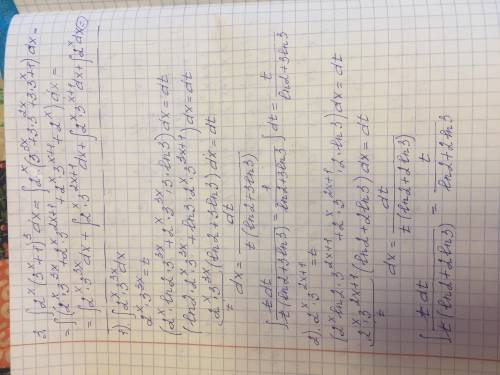 3. ∫2^x(3^x+1)^3 dx = ∫2^x·(3^{3x}+3·3^{2x}+3·3^x+1) dx =
= ∫(2^x·3^{3x}+2^x·3^{2x+1}+2^x·3^{x+1}+2^x) dx =
= ∫2^x·3^{3x} dx + ∫2^x·3^{2x+1} dx + ∫2^x·3^{x+1} dx + ∫2^x dx =
1). ∫2^x·3^{3x} dx
2^x·3^{3x} = t
(2^x·ln2·3^{3x}+2^x·3^{3x}·3·ln3) dx = dt
(ln2·2^x·3^{3x}+ln3·2^x·3^{3x+1}) dx = dt
2^x·3^{3x}(ln2+3ln3) dx = dt
t
dx = dt/(t(ln2+3ln3))
∫ t dt/(t(ln2+3ln3)) = 1/(ln2+3ln3) ∫dt = t/(ln2+3ln3)
2). 2^x·3^{2x+1} = t
(2^x ln2·3^{2x+1}+2^x·3^{2x+1}·2·ln3) dx = dt
2^x·3^{2x+1}(ln2+2ln3) dx = dt
t
dx = dt/(t(ln2+2ln3))
∫ t dt/(t(ln2+2ln3)) = t/(ln2+2ln3)